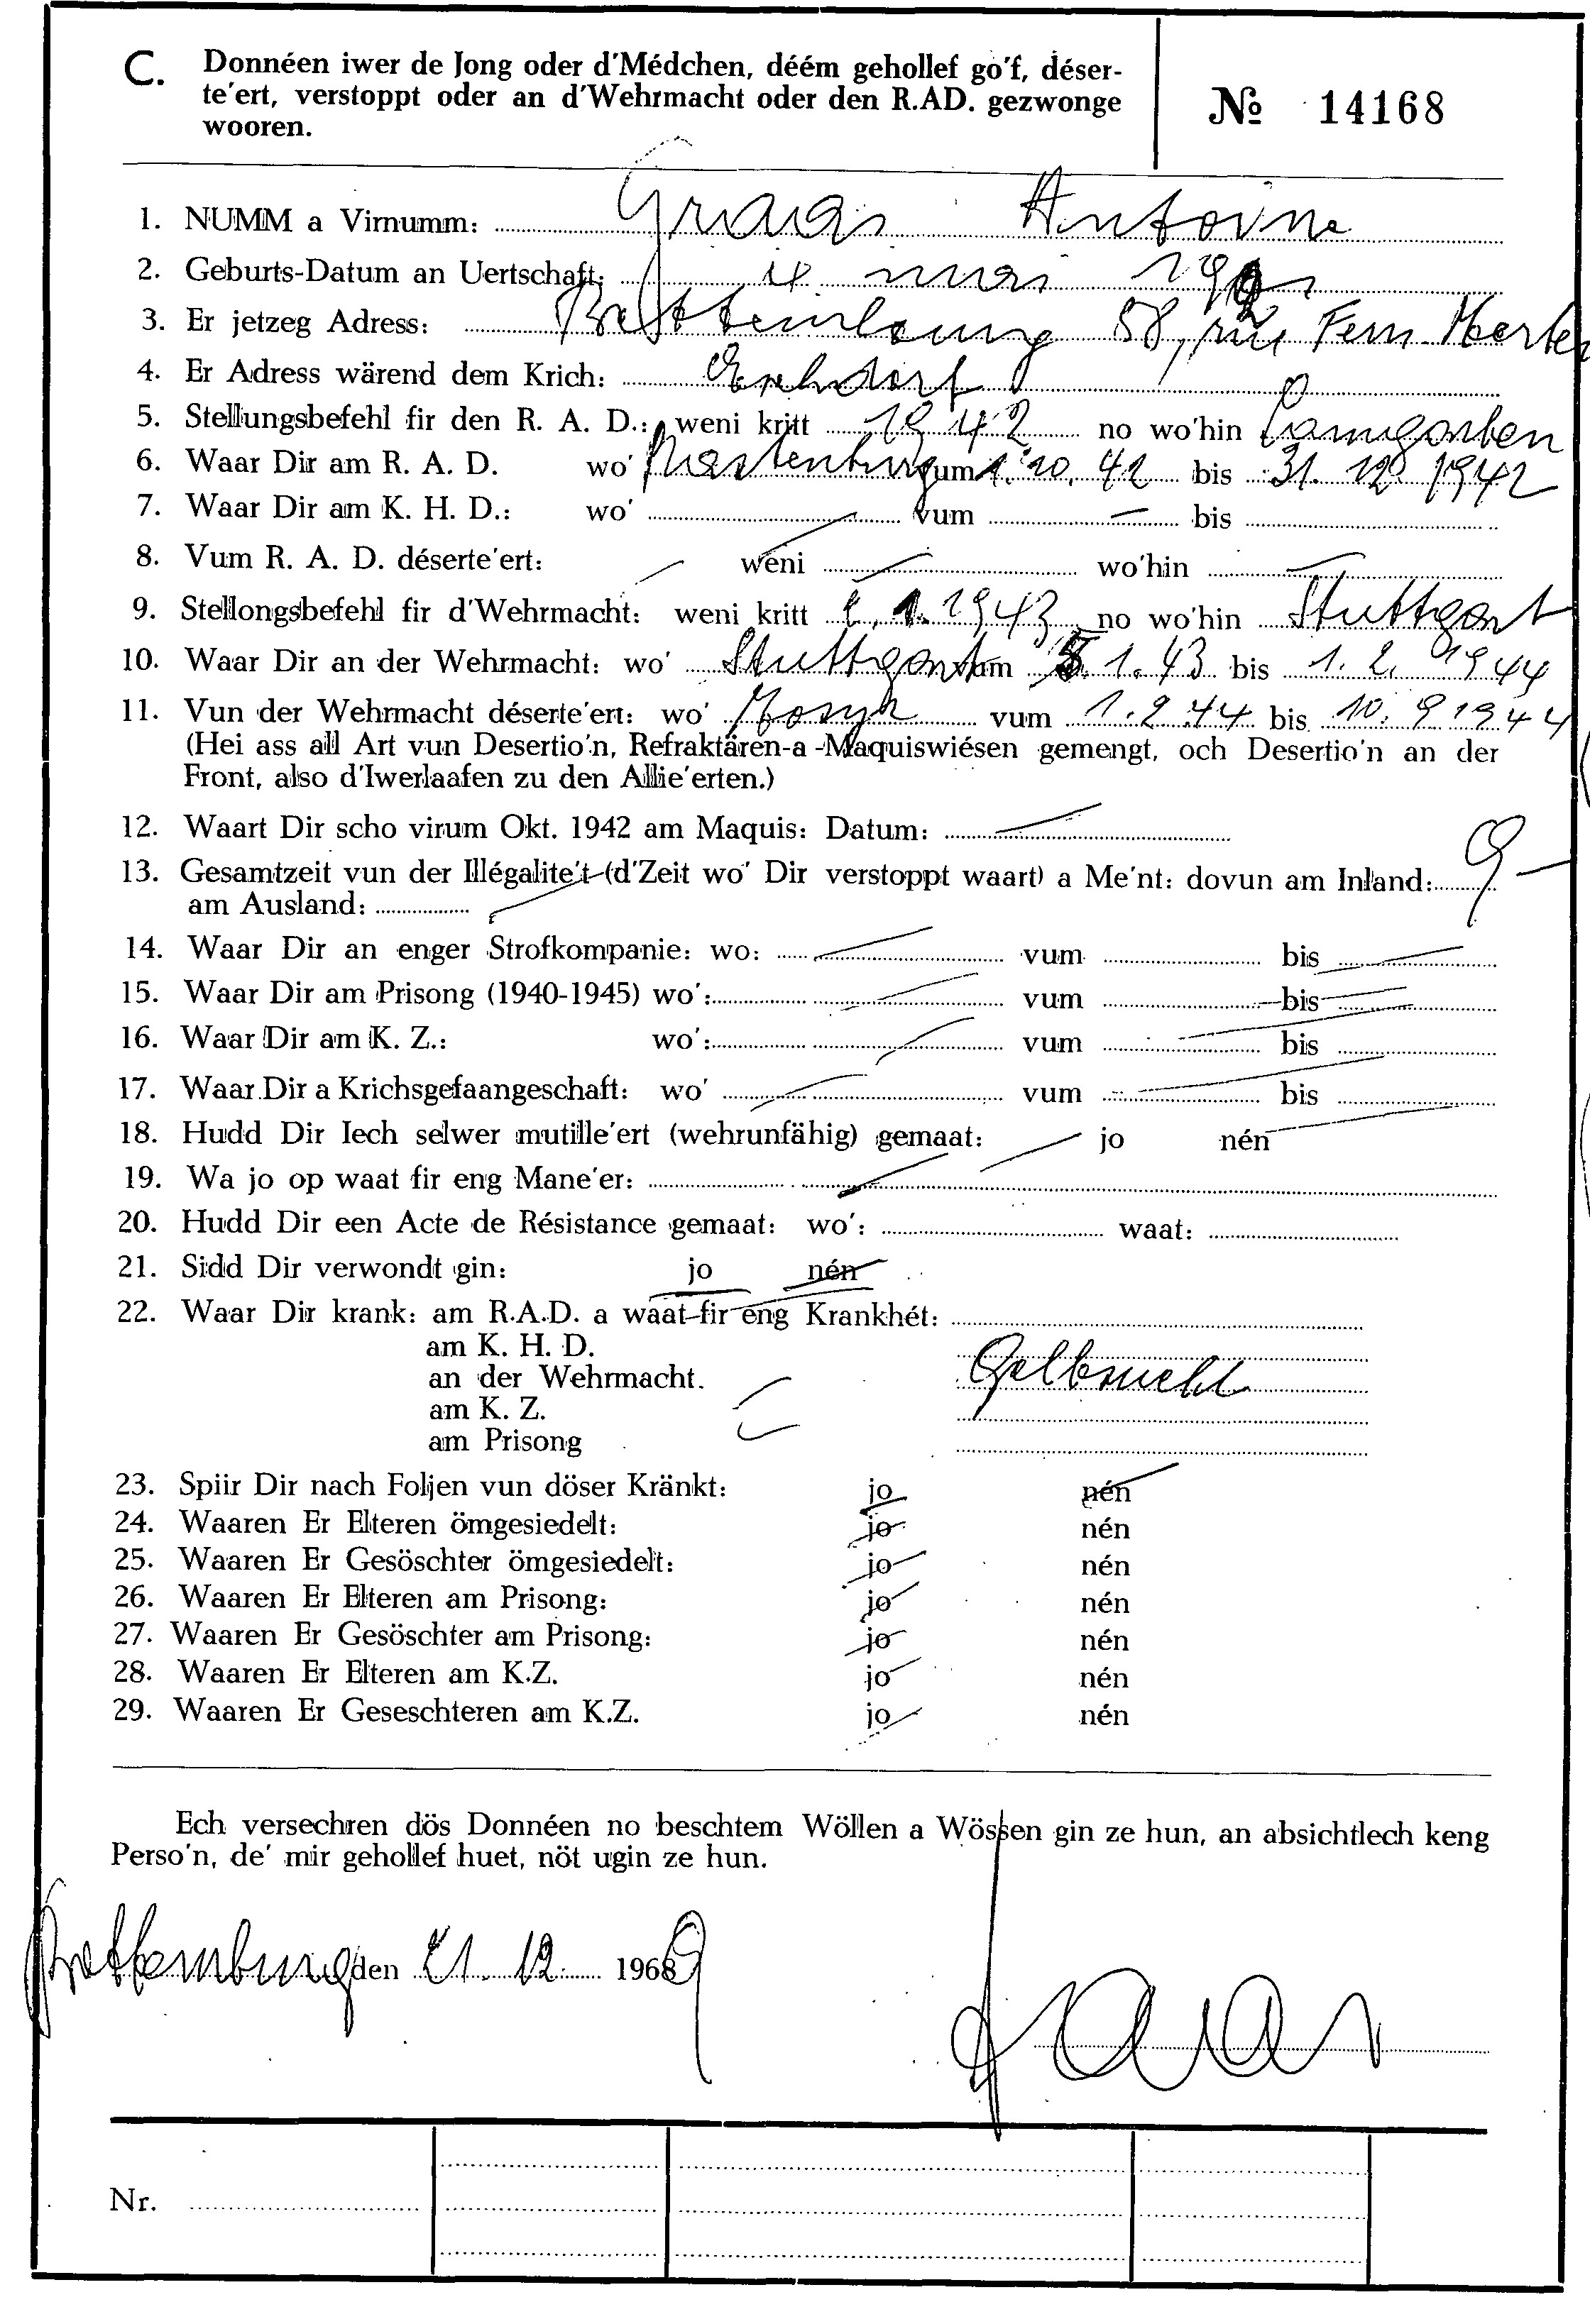 C. Donnéen iwer de Jong oder d'Médchen, déém gehollef go'f, déser-
te'ert, verstoppt oder an d'Wehrmacht oder den R.AD. gezwonge
wooren.
№ 14168
1. NUMM a Virnumm: Graas Antoine
2. Geburts-Datum an Uertschaft: 4. mai
3. Er jetzeg Adress: Bettembourg 58, rue Fern. Mertens
4. Er Adress wärend dem Krich:
5. Stellungsbefehl fir den R. A. D.: weni kritt 1942 no wo'hin
6. Waar Dir am R. A. D. wo' Rastenburg vum 1. 10. 42 bis 31. 12 1942
7. Waar Dir am K. H. D.: wo' vum — bis
8. Vum R. A. D. déserte'ert: weni wo'hin
9. Stellongsbefehl fir d'Wehrmacht: weni kritt 1. 1. 1943 no wo'hin Stuttgart
10. Waar Dir an der Wehrmacht: wo' Stuttgart vum 5. 1. 43 bis 1. 2. 1944
11. Vun der Wehrmacht déserte'ert: wo' vum 1. 2 44 bis 10. 9 1944
(Hei ass all Art vun Desertio'n, Refraktären-a -Maquiswiésen gemengt, och Desertio'n an der
Front, also d'Iwerlaafen zu den Allie'erten.)
12. Waart Dir scho virum Okt. 1942 am Maquis: Datum:
13. Gesamtzeit vun der Illégalite't (d'Zeit wo' Dir verstoppt waart) a Me'nt: dovun am Inland: 9 —
am Ausland:
14. Waar Dir an enger Strofkompanie: wo: vum bis
15. Waar Dir am Prisong (1940-1945) wo': vum bis
16. Waar Dir am K. Z.: wo': vum bis
17. Waar Dir a Krichsgefaangeschaft: wo' vum bis
18. Hudd Dir Iech selwer mutille'ert (wehrunfähig) gemaat: jo nén
19. Wa jo op waat fir eng Mane'er:
20. Hudd Dir een Acte de Résistance gemaat: wo': waat:
21. Sidd Dir verwondt gin: jo nén
22. Waar Dir krank: am R.A.D. a waat fir eng Krankhét:
am K. H. D.
an der Wehrmacht. Gelbsucht
am K. Z.
am Prisong
23. Spiir Dir nach Foljen vun döser Kränkt: jo nén
24. Waaren Er Elteren ömgesiedelt: jo nén
25. Waaren Er Gesöschter ömgesiedelt: jo nén
26. Waaren Er Elteren am Prisong: jo nén
27. Waaren Er Gesöschter am Prisong: jo nén
28. Waaren Er Elteren am K.Z. jo nén
29. Waaren Er Geseschteren am K.Z. jo nén
Ech versechren dös Donnéen no beschtem Wöllen a Wössen gin ze hun, an absichtlech keng
Perso'n, de' mir gehollef huet, nöt ugin ze hun.
Bettemburg den 21. 12. 1969
Graas
Nr.